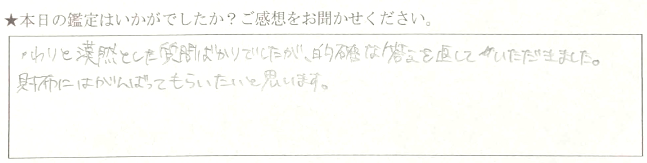 ★本日の鑑定はいかがでしたか？ご感想をお聞かせください。
わりと漠然とした質問ばかりでしたが、的確な答えを返していただきました。
財布にはがんばってもらいたいと思います。